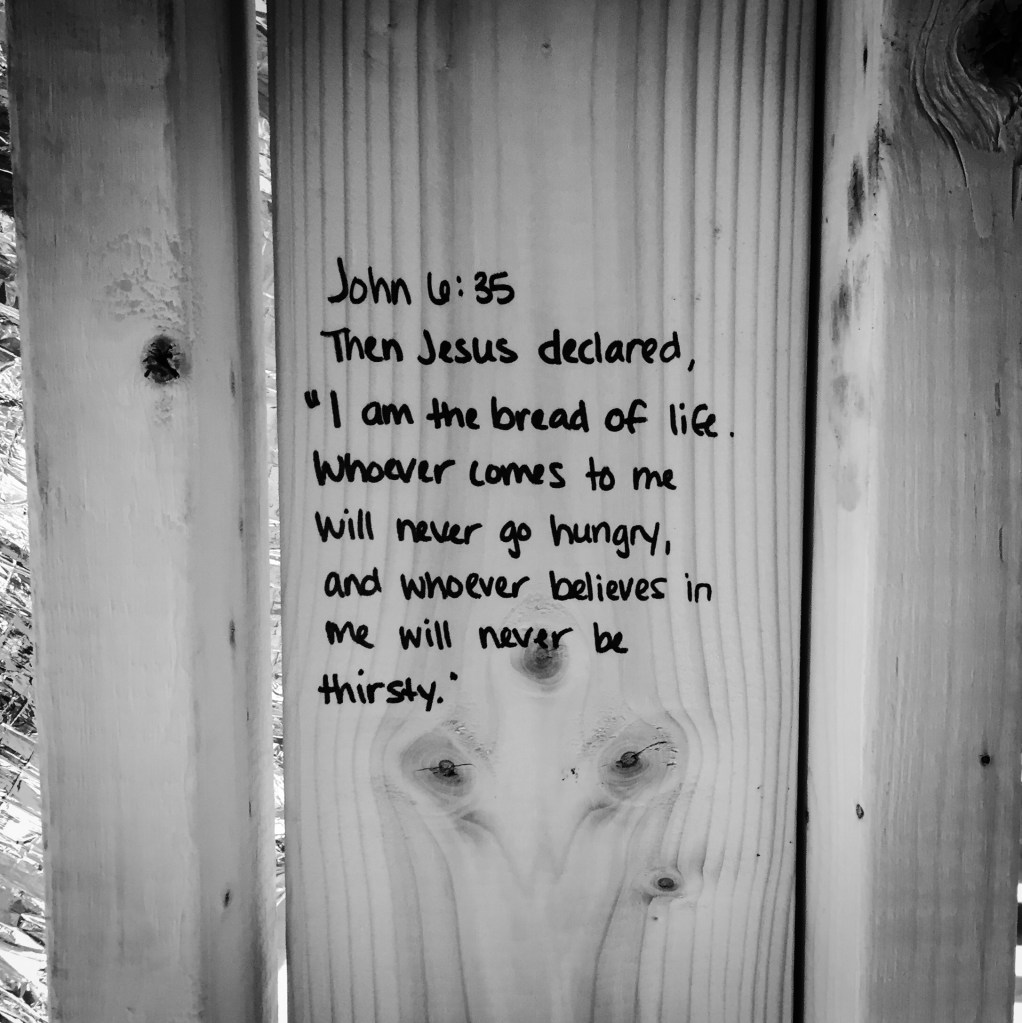 John 6:35
Then Jesus declared,
"I am the bread of life.
Whoever comes to me
will never go hungry,
and whoever believes in
me will never be
thirsty."